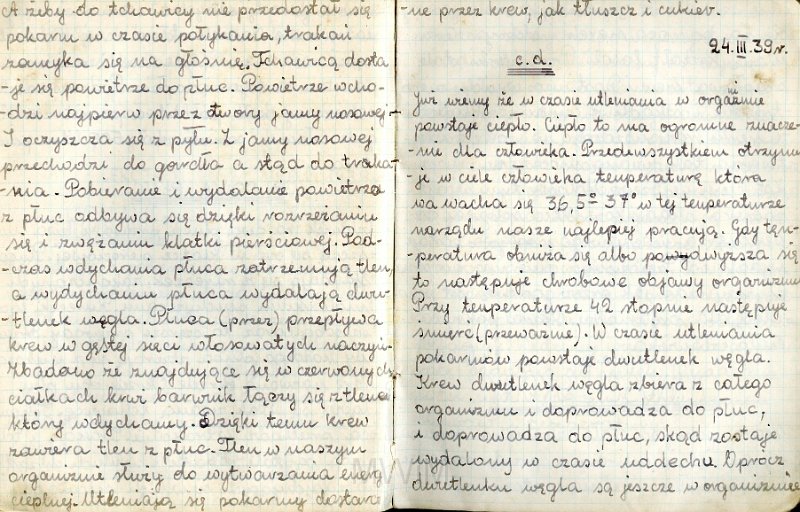 A żeby do tchawicy nie przedostał się
pokarm w czasie połykania, trakań
zamyka się na głośnię. Tchawicą dosta
-je się powietrze do płuc. Powietrze wcho-
-dzi najpierw przez otwory jamy nosowej
I oczyszcza się z pyłu. Z jamy nosowej
przechodzi do gardła a stąd do traka-
-nia. Pobieranie i wydalanie powietrza
z płuc odbywa się dzięki rozrzeżaniu
się i zwężaniu klatki pierściowej. Pod-
-czas wdychania płuca zatrzemują tlen,
a wydychaniu płuca wydalają dwu-
-tlenek węgla. Płuca (przez) przepływa
krew w gęstej sięci włosowatych naczyń.
Zbadano że znajdujące się w czerwonych
ciałkach krwi barwnik łączy się z tlenem
który wdychamy. Dzięki temu krew
zawiera tlen z płuc. Tlen w naszym
organizmie służy do wytwarzania energ
cieplnej. Utleniają się pokarmy dostarc
-ne przez krew, jak tłuszcz i cukier.
24.III.39r.
c.d.
Już wiemy że w czasie utleniania w organiźmie
powstaje ciepło. Ciepło to ma ogromne znacze-
-nie dla człowieka. Przedewszystkiem otrzymu
-je w ciele człowieka temperaturę która
wa wacha się 36,5° 37° w tej temperaturze
narządu nasze najlepiej pracują. Gdy tęm-
-peratura obniża się albo podwyższa się
to następuje chrobowe objawy organizmu
Przy temperaturze 42 stopnie następuje
śmierć (przeważnie). W czasie utleniania
pokarmów powstaje dwutlenek węgla.
Krew dwutlenek węgla zbiera z całego
organizmu i doprowadza do płuc,
i doprowadza do płuc, skąd zostaje
wydalony w czasie uddechu. Oprócz
dwutlenku węgla są jeszcze w organizmie